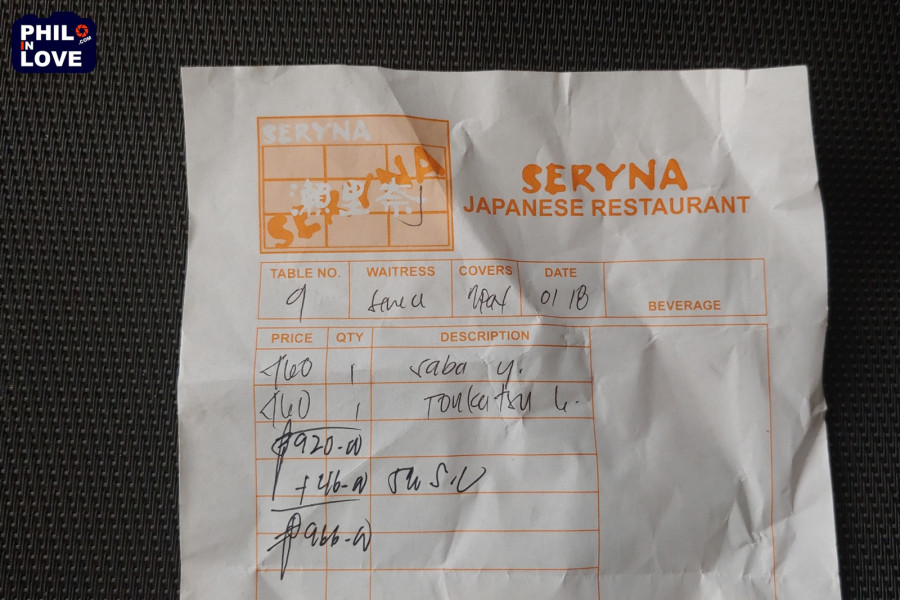 PHIL
IN
LOVE
.COM
SERYNA
SERYNA
瀬里奈
SERYNA
JAPANESE RESTAURANT
TABLE NO. WAITRESS COVERS DATE
9 01 18
BEVERAGE
PRICE QTY DESCRIPTION
460 1 saba y.
460 1 Tonkatsu
₱920-00
+46-00 5% S.C
₱966-00